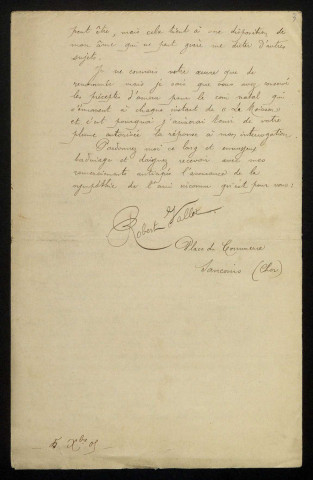 peut être, mais cela tient à une disposition de
mon âme qui ne peut guère me dicter d'autres
sujets.
Je ne connais votre œuvre que de
renommée mais je sais que vous avez
les préceptes d'amour pour le coin natal qui
s'émanent à chaque instant de "La
et c'est pourquoi j'aimerai tenir de votre
plume autorisée la réponse à mon interrogation.
Pardonnez moi ce long et ennuyeux
et daignez recevoir avec mes
remerciements anticipés l'assurance de la
sympathie de l'ami inconnu qu'est pour vous:
Robert Vallet
Place du Commerce
Sancoins (Cher)
15 Xbre 05